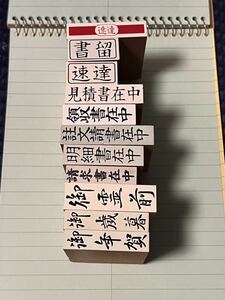 速達
書留
速達
見積書在中
領収書在中
註文請書在中
明細書在中
請求書在中
御霊前
御歳暮
御年賀